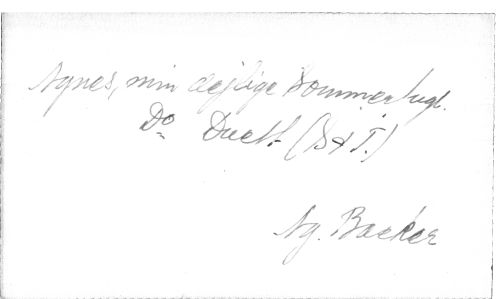 Agnes, min dejlige Sommerfugl.
Do Duett (S & T.)
Ag. Backer